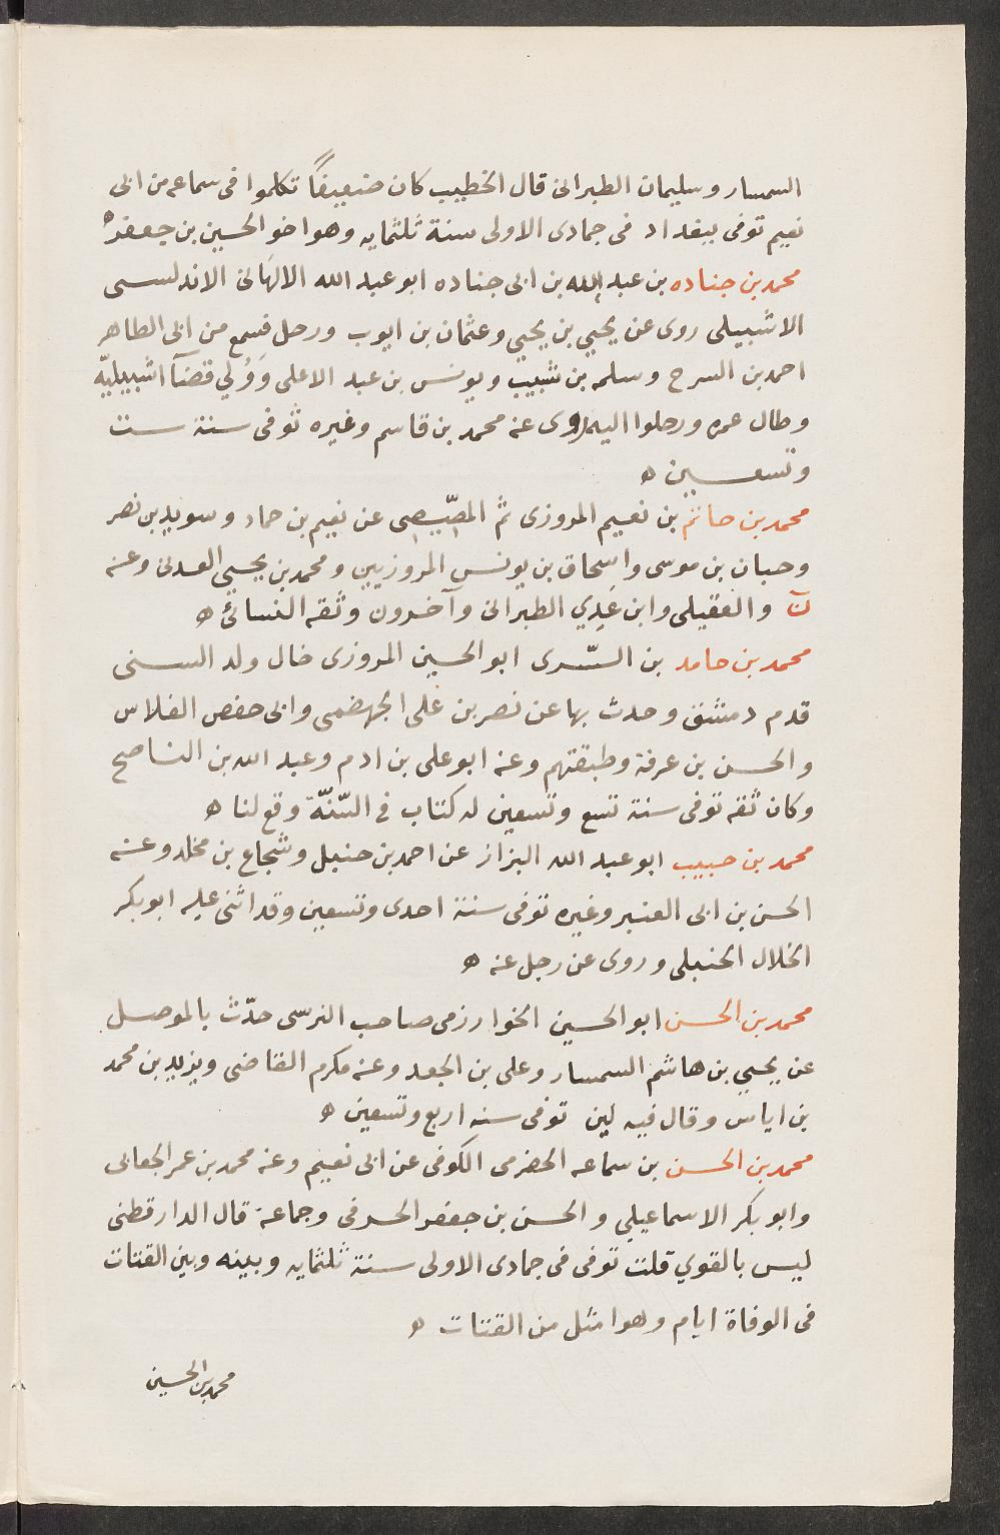 السمسار وسليمان الطبرانى قال الخطيب كان ضعيفًا تكلموا فى سماعه من ابى
نعيم توفى ببغداد فى جمادى الاولى سنة ثلثمايه وهو اخو الحسين بن جعفر ه
محمد بن جناده بن عبد الله بن ابى جناده ابو عبد الله الالهَانى الاندلسى
الاشبيلى روى عن يحيي بن يحيي وعثمان بن ايوب ورحل فسمع من ابى الطاهر
احمد بن السرح وسلمه بن شبيب ويونس بن عبد الاعلى وَوُلي قضَآ اشبيليّه
وطال عمره ورحلوا اليه روى عنه محمد بن قاسم وغيره توفى سنة ست
وتسعين ه
محمد بن حاتم بن نعيم المروزى ثم المصّيصى عن نعيم بن حماد وسويد بن نصر
وحبان بن موسى واسحاق بن يونس المروزيين ومحمد بن يحيي العدنى وعنه
ن والعقيلى وابن عَدِي الطبرانى وآخرون وثقه النسائئ ه
محمد بن حامد بن السّرى ابو الحسين المروزى خال ولد السنى
قدم دمشق وحدث بها عن نصر بن على الجهضمى وابى حفص الفلاس
والحسن بن عرفة وطبقتهم وعنه ابو على بن ادم وعبد الله بن الناصح
وكان ثقه توفى سنة تسع وتسعين له كتاب فى السّنّة وقع لنا ه
محمد بن حبيب ابو عبد الله البزاز عن احمد بن حنبل وشجاع بن مخلد وعنه
الحسن بن ابى العنبر وغيره توفى سنة احدى وتسعين وقد اثنى عليه ابو بكر
الخلال الحنبلى وروى عن رجل عنه ه
محمد بن الحسن ابو الحسين الخوارزمى صاحب النرسى حدّث بالموصل
عن يحيي بن هاشم السمسار وعلى بن الجعد وعنه مكرم القاضى ويزيد بن محمد
بن اياس وقال فيه لين توفى سنه اربع وتسعين ه
محمد بن الحسن بن سماعه الحضرمى الكوفى عن ابى نعيم وعنه محمد بن عمر الجعابى
وابو بكر الاسماعيلي والحسن بن جعفر الحرفى وجماعة قال الدارقطنى
ليس بالقوي قلت توفى فى جمادى الاولى سنة ثلثمايه وبينه وبين القتات
فى الوفاة ايام وهو امثل من القتات ه
محمد بن الحسين